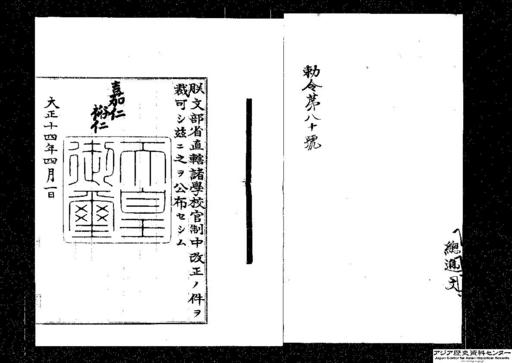 勅令第八十號
總遞文
朕文部省直轄諸學校官制中改正ノ件ヲ
裁可シ玆ニ之ヲ公布セシム
嘉仁
裕仁
天皇
御璽
大正十四年四月一日
アジア歴史資料センター
Japan Center for Asian Historical Records